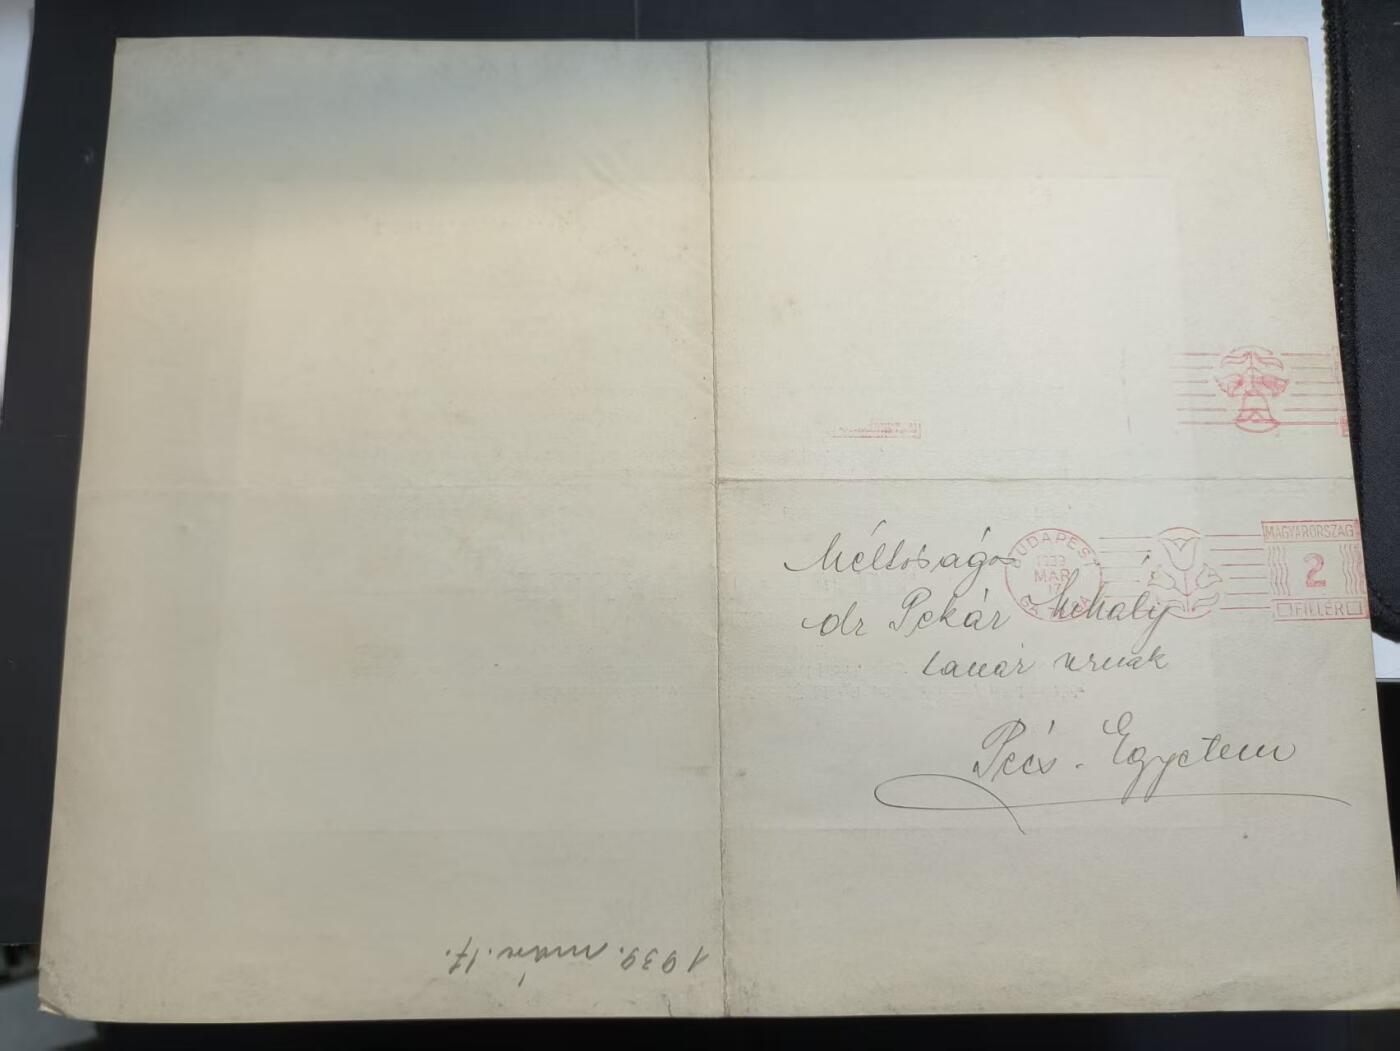 BUDAPEST
1939
MAR
17
MAGYARORSZÁG
2
FILLÉR
Méltóságos
dr Pekár Mihály
tanár urnak
Pécs. Egyetem
1939. márc. 17.